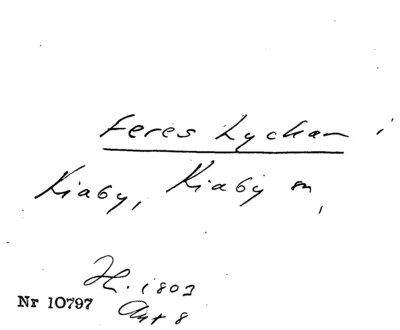 Feres Lyckan i
Kiaby, Kiaby sn,
H. 1803
Nr 10797
Akt 8